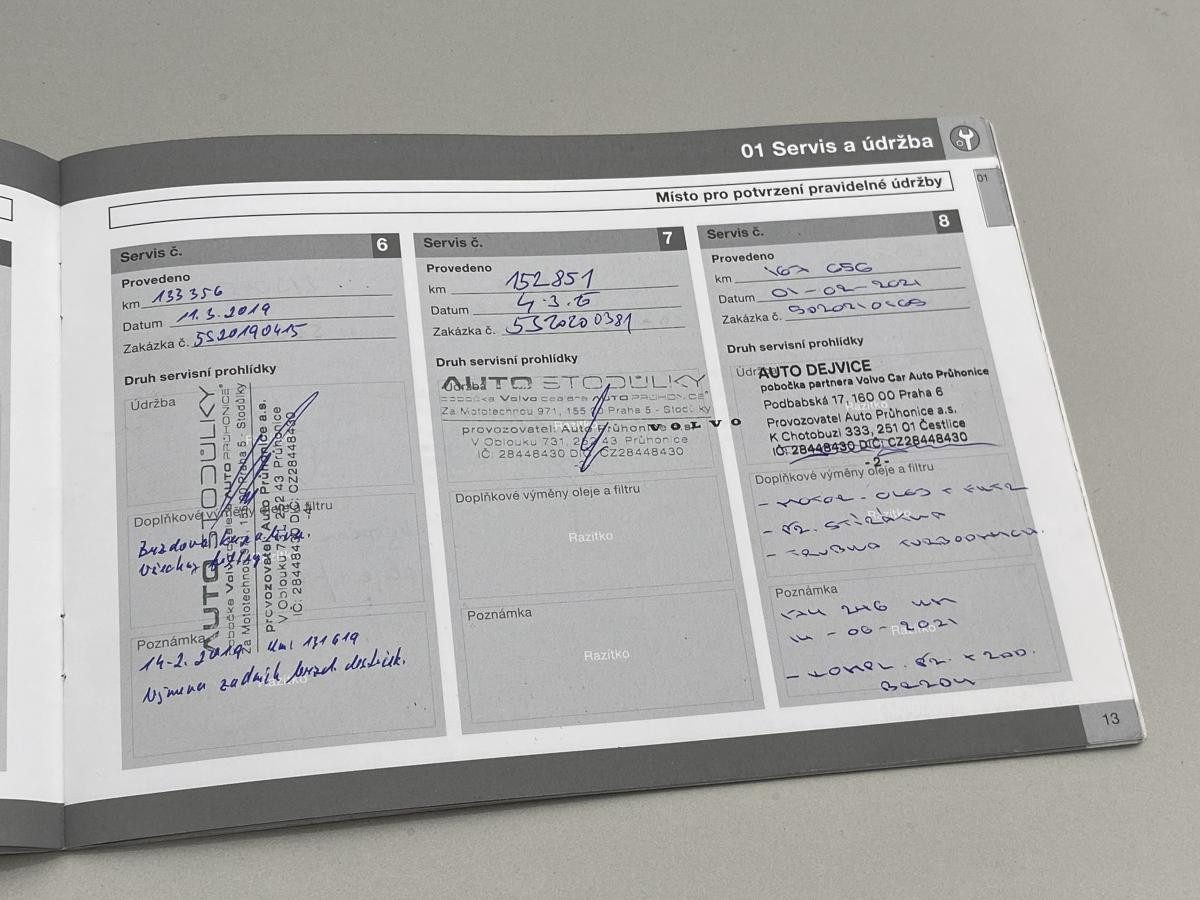 01 Servis a údržba
01
Místo pro potvrzení pravidelné údržby
Servis č. 6
Provedeno
km 133 356
Datum 11.3.2019
Zakázka č. 5S20190415
Druh servisní prohlídky
Údržba
AUTO STODŮLKY
pobočka Volvo AUTO PRŮHONICE
Za Mototechnou 971, 155 00 Praha 5 - Stodůlky
provozovatel: Auto Průhonice a.s.
V Oblouku 731, 252 43 Průhonice
IČ: 28448430 DIČ: CZ28448430
-4-
Doplňkové výměny oleje a filtru
Brzdová kapalina.
Všechny filtry
Poznámka
14-2. 2019 km: 131619
Výměna zadních brzd. destiček.
Razítko
Servis č. 7
Provedeno
km 152 851
Datum 4.3.
Zakázka č. 5S20200381
Druh servisní prohlídky
Údržba
AUTO STODŮLKY
pobočka Volvo AUTO PRŮHONICE
Za Mototechnou 971, 155 00 Praha 5 - Stodůlky
VOLVO
provozovatel: Auto Průhonice a.s.
V Oblouku 731, 252 43 Průhonice
IČ: 28448430 DIČ: CZ28448430
Doplňkové výměny oleje a filtru
Razítko
Poznámka
Razítko
Servis č. 8
Provedeno
km 656
Datum 01-02-2021
Zakázka č.
Druh servisní prohlídky
Údržba
AUTO DEJVICE
pobočka partnera Volvo Car Auto Průhonice
Podbabská 17, 160 00 Praha 6
Provozovatel Auto Průhonice a.s.
K Chotobuzi 333, 251 01 Čestlice
IČ: 28448430 DIČ: CZ28448430
-2-
Doplňkové výměny oleje a filtru
- MOTOR. OLEJ + FILTR
Razítko
Poznámka
Razítko
13